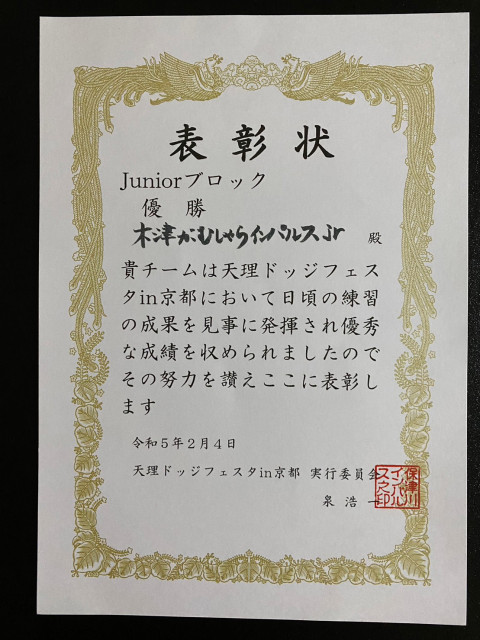 表彰状
Juniorブロック
優勝
木津がむしゃらインパルスJr 殿
貴チームは天理ドッジフェス
タin京都において日頃の練習
の成果を見事に発揮され優秀
な成績を収められましたので
その努力を讃えここに表彰し
ます
令和5年2月4日
天理ドッジフェスタin京都 実行委員会
泉浩一
保津川
インパル
スの印